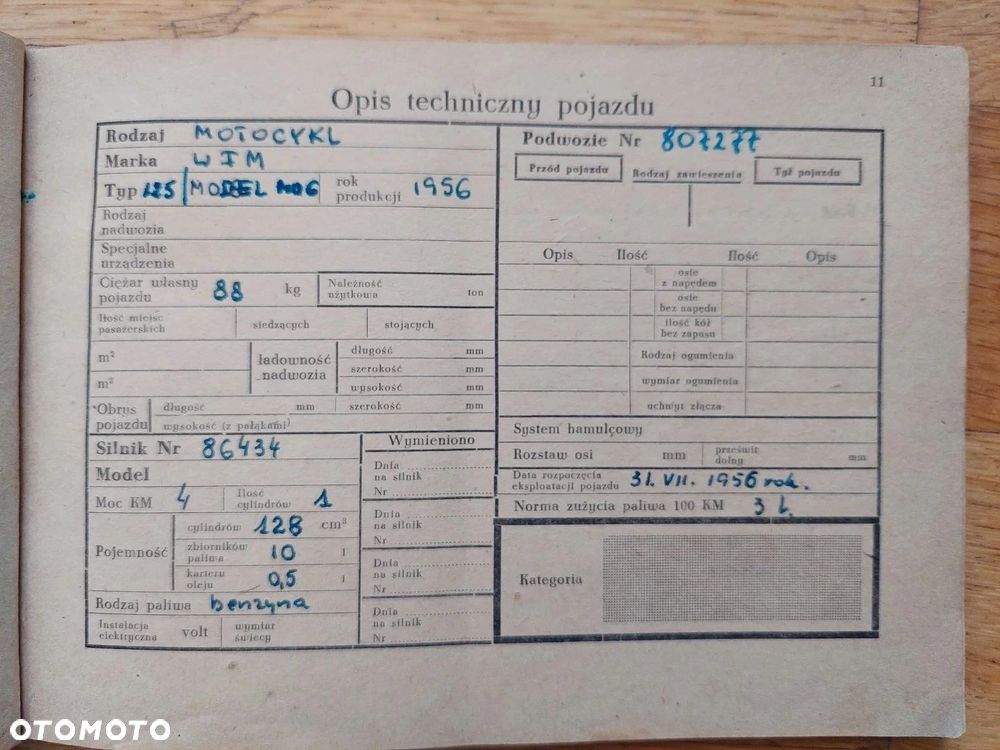 11
Opis techniczny pojazdu
Rodzaj MOTOCYKL
Marka WFM
Typ 125 MODEL M06 rok produkcji 1956
Rodzaj nadwozia
Specjalne urządzenia
Ciężar własny pojazdu 88 kg Należność użytkowa ton
Ilość miejsc pasażerskich siedzących stojących
m²
m²
ładowność nadwozia długość mm
szerokość mm
wysokość mm
Obrys pojazdu długość mm szerokość mm
wysokość (z pałąkami)
Silnik Nr 86434
Model
Moc KM 4 Ilość cylindrów 1
Pojemność cylindrów 128 cm³
zbiorników paliwa 10 l
karteru oleju 0,5 l
Rodzaj paliwa benzyna
Instalacja elektryczna volt wymiar świecy
Wymieniono
Dnia
na silnik
Nr
Dnia
na silnik
Nr
Dnia
na silnik
Nr
Dnia
na silnik
Nr
Podwozie Nr 807277
Przód pojazdu Rodzaj zawieszenia Tył pojazdu
Opis Ilość Ilość Opis
osie z napędem
osie bez napędu
ilość kół bez zapasu
Rodzaj ogumienia
wymiar ogumienia
uchwyt złącza
System hamulcowy
Rozstaw osi mm prześwit dolny mm
Data rozpoczęcia eksploatacji pojazdu 31. VII. 1956 rok.
Norma zużycia paliwa 100 KM 3 l.
Kategoria
OTOMOTO